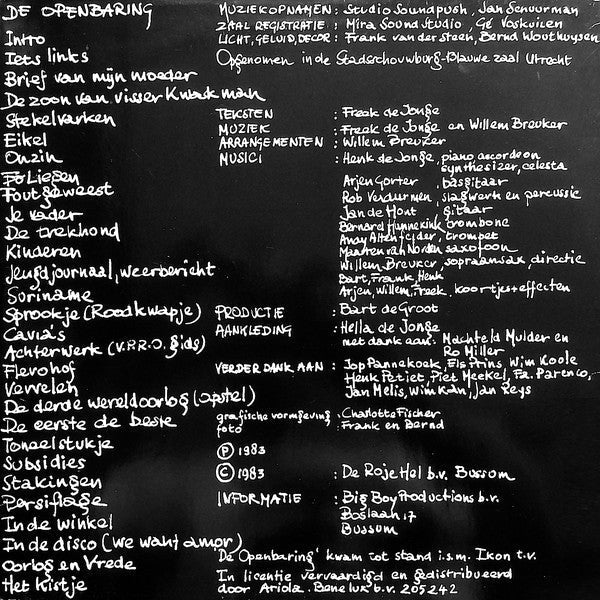 DE OPENBARING
Intro
Iets links
Brief van mijn moeder
De zoon van visser Kwakman
Stekelvarken
Eikel
Onzin
Po Liepen
Fout geweest
Je vader
De trekhond
Kinderen
Jeugdjournaal, weerbericht
Suriname
Sprookje (Roodkwapje)
Cavia's
Achterwerk (V.P.R.O. gids)
Flevohof
Vervelen
De derde wereldoorlog (opstel)
De eerste de beste
Toneelstukje
Subsidies
Stakingen
Persiflage
In de winkel
In de disco (we want amor)
Oorlog en Vrede
Het kistje
MUZIEKOPNAMEN: Studio Soundpush, Jan Schuurman
ZAAL REGISTRATIE: Mira Sound Studio, Gé Voskuilen
LICHT, GELUID, DECOR: Frank van der steen, Bernd Wouthuysen
Opgenomen in de Stadsschouwburg-Blauwe zaal Utrecht
TEKSTEN : Freek de Jonge
MUZIEK : Freek de Jonge en Willem Breuker
ARRANGEMENTEN : Willem Breuker
MUSICI : Henk de Jonge, piano, accordeon
synthesizer, celesta
Arjen Gorter, basgitaar
Rob Verdurmen, slagwerk en percussie
Jan de Hont, gitaar
Bernard Hunnekink, trombone
Andy Altenfelder, trompet
Maarten van Norden, saxofoon
Willem Breuker, sopraansax, directie
Bart, Frank, Henk
Arjen, Willem, Freek, koortjes + effecten
PRODUCTIE : Bart de Groot
AANKLEDING : Hella de Jonge
met dank aan: Machteld Mulder en
Ro Miller
VERDER DANK AAN : Jop Pannekoek, Els Prins, Wim Koole
Henk Petiet, Piet Meekel, Fa. Parenco,
Jan Melis, Wim Kan, Jan Reys
grafische vormgeving : Charlotte Fischer
foto : Frank en Bernd
Ⓟ 1983
© 1983 : De Roje Hel b.v. Bussum
INFORMATIE : Big Boy Productions b.v.
Boslaan 17
Bussum
'De Openbaring' kwam tot stand i.s.m. Ikon t.v.
In licentie vervaardigd en gedistribueerd
door Ariola Benelux b.v. 205 242